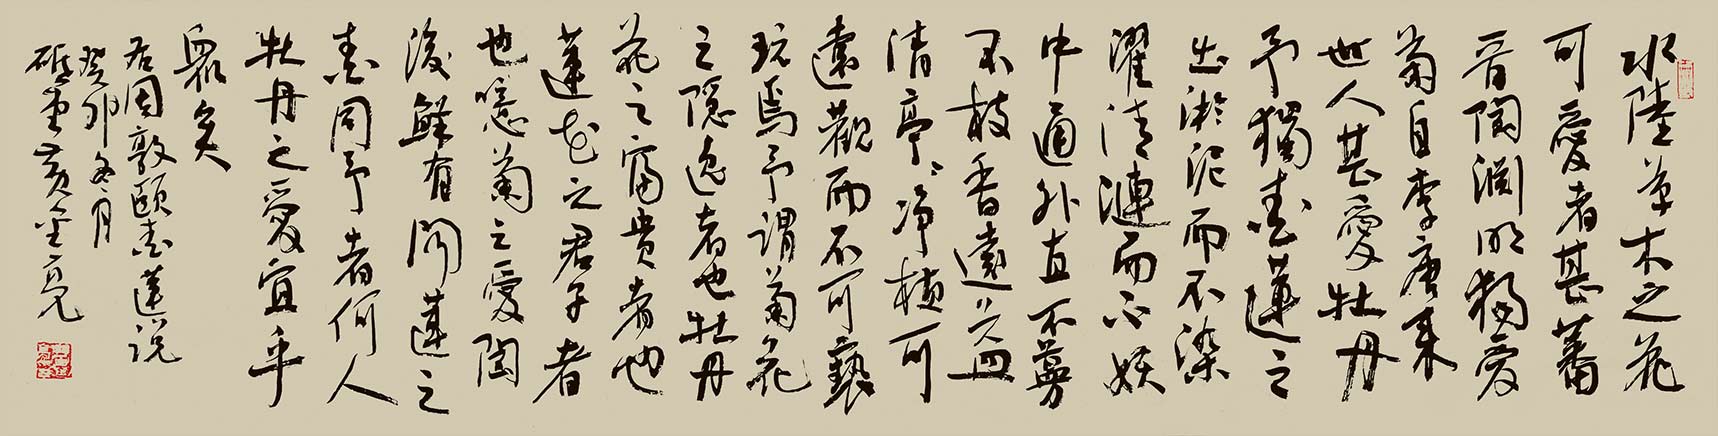 水陸草木之花
可愛者甚蕃
晋陶渊明獨愛
菊自李唐来
世人甚愛牡丹
予獨愛蓮之
出淤泥而不染
濯清漣而不妖
中通外直不蔓
不枝香遠益
清亭亭净植可
遠觀而不可褻
玩焉予謂菊花
之隱逸者也牡丹
花之富貴者也
蓮花之君子者
也噫菊之愛陶
後鮮有聞蓮之
愛同予者何人
牡丹之愛宜乎
眾矣
右周敦頤愛蓮説
癸卯冬月